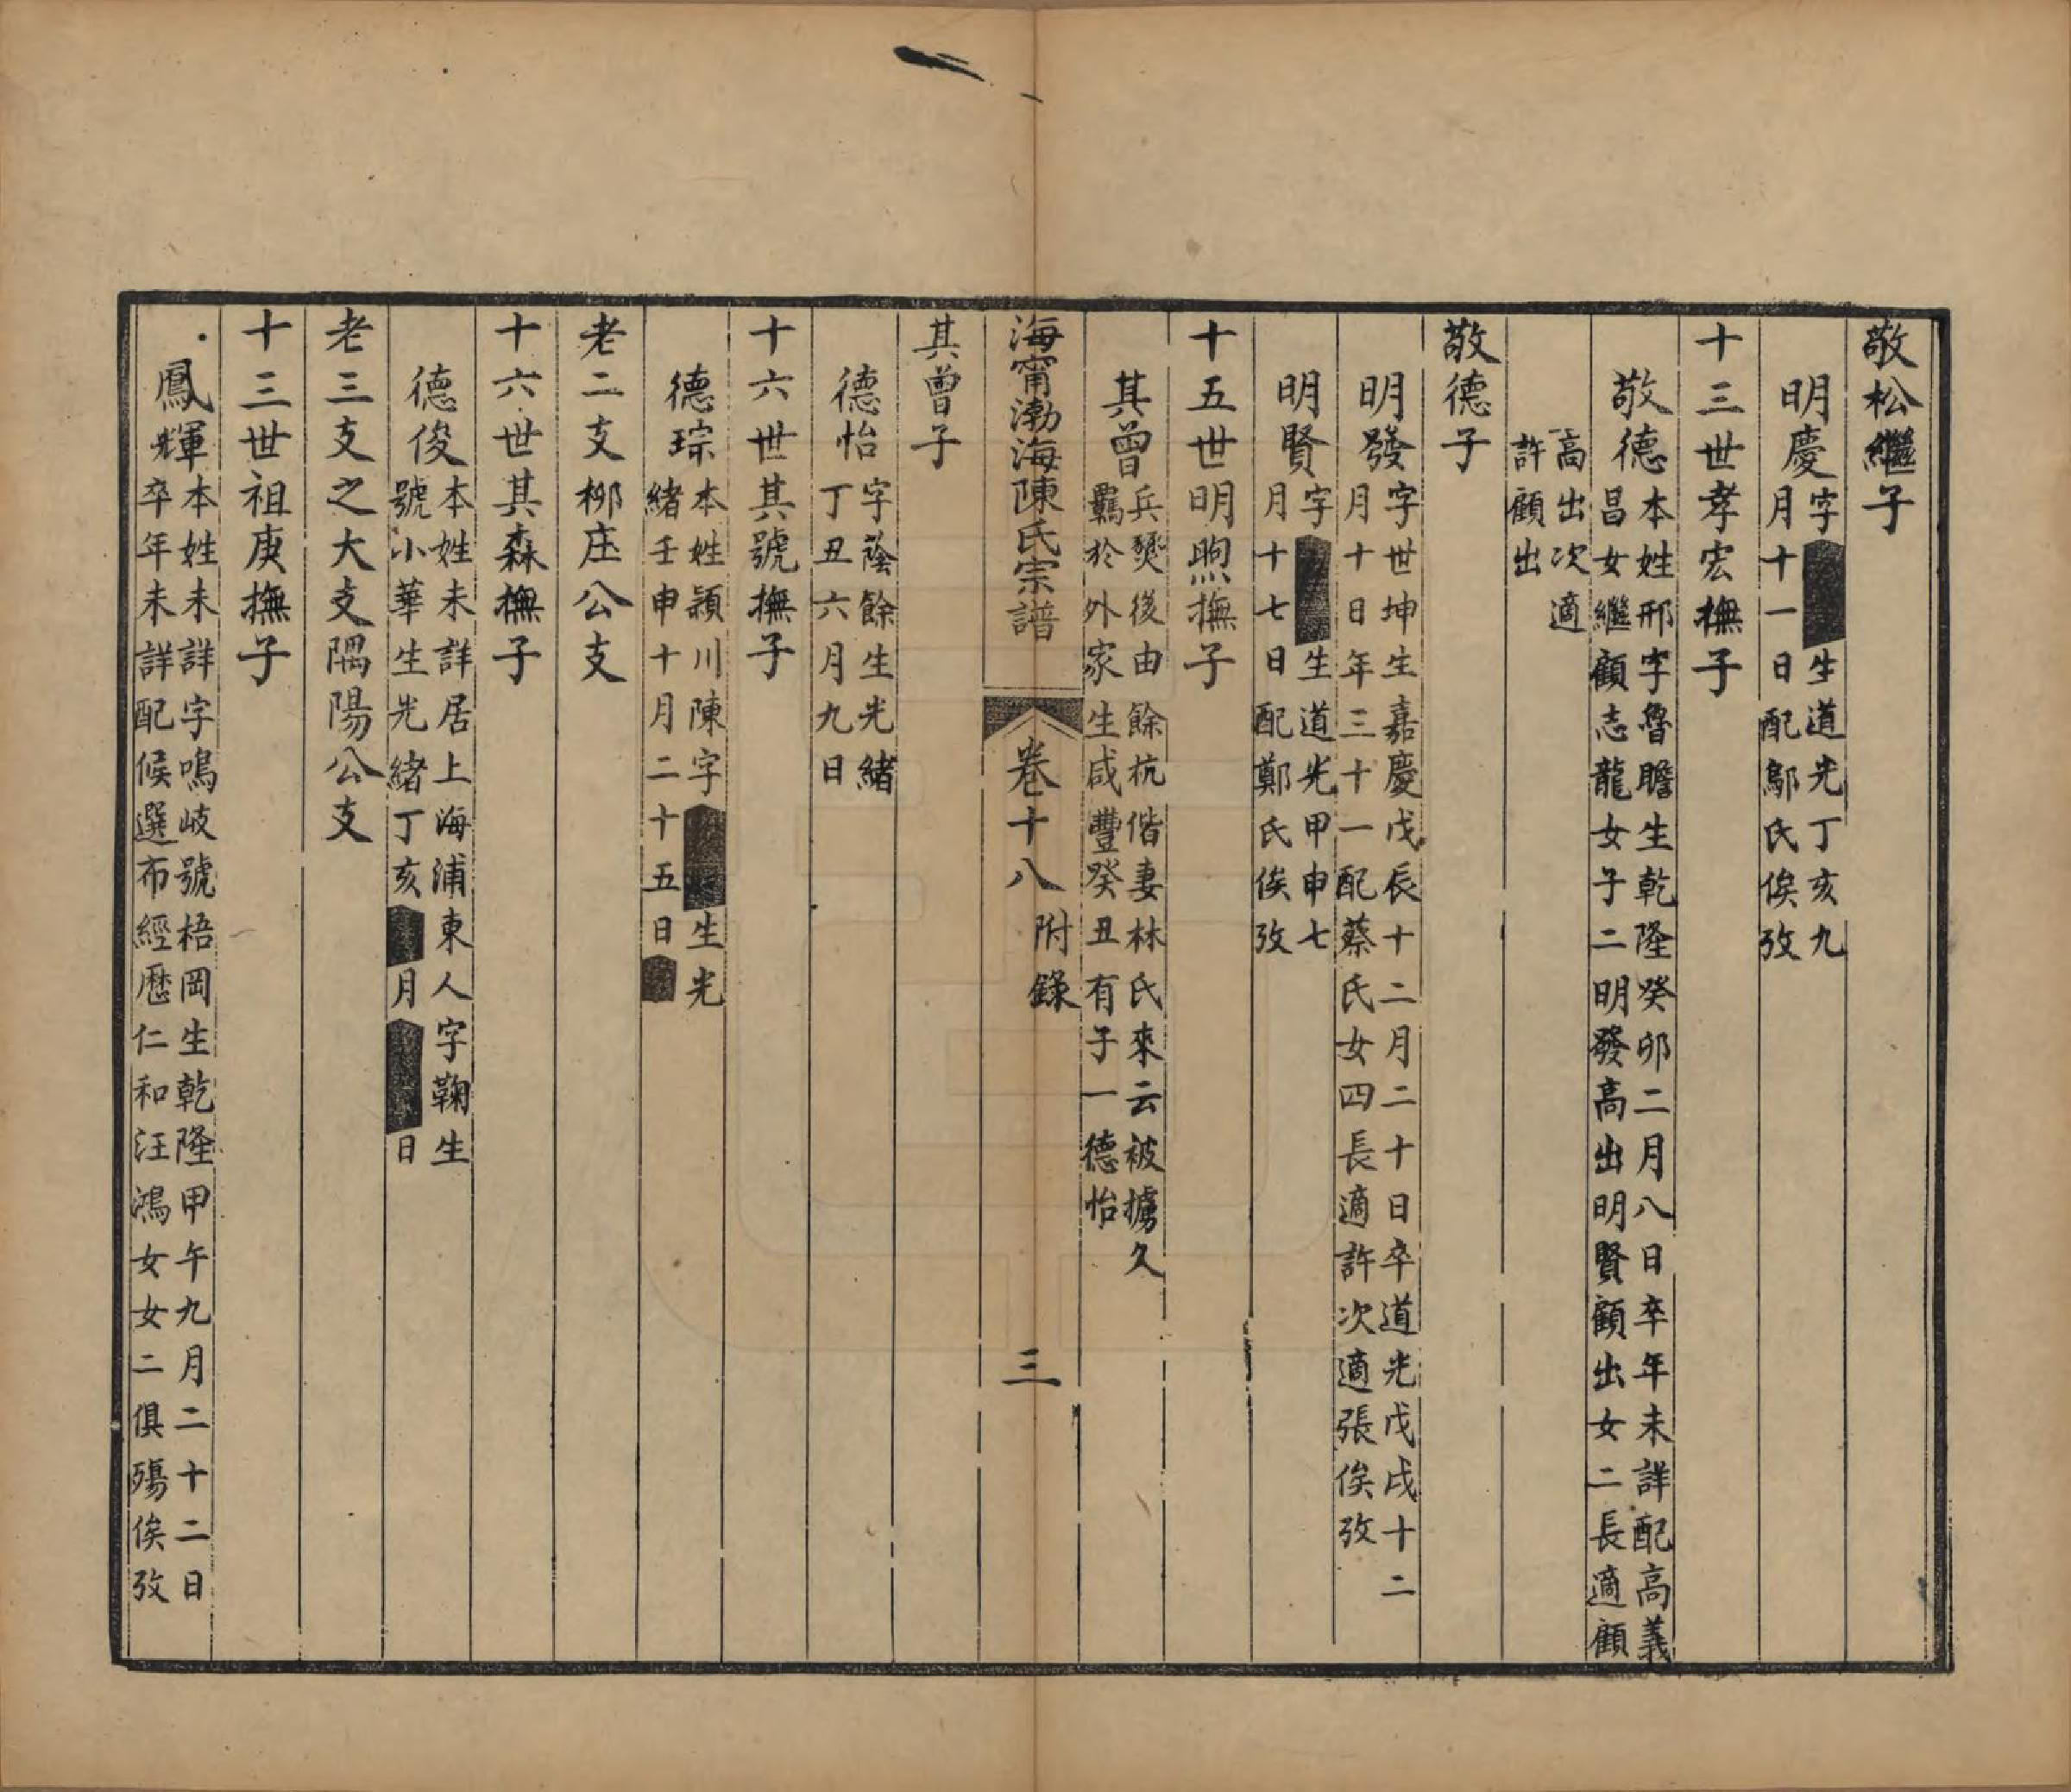 敬松繼子
明慶字■■生道光丁亥九
月十一日配鄔氏俟攷
十三世孝宏撫子
敬德本姓邢字魯瞻生乾隆癸卯二月八日卒年未詳配高義
昌女繼顧志龍女子二明發高出明賢顧出女二長適顧
高出次適
許顧出
敬德子
明發字世坤生嘉慶戊辰十二月二十日卒道光戊戌十二
月十日年三十一配蔡氏女四長適許次適張俟攷
明賢字■■生道光甲申七
月十七日配鄭氏俟攷
十五世明煦撫子
其曾兵燹後由餘杭偕妻林氏來云被擄久
羈於外家生咸豐癸丑有子一德怡
海甯渤海陳氏宗譜 卷十八 附錄 三
其曾子
德怡字蔭餘生光緒
丁丑六月九日
十六世其號撫子
德琮本姓潁川陳字■■生光
緒壬申十月二十五日■
老二支栁庄公支
十六世其森撫子
德俊本姓未詳居上海浦東人字鞠生
號小華生光緒丁亥■月■■日
老三支之大支隅陽公支
十三世祖庚撫子
鳳輝本姓未詳字鳴岐號梧岡生乾隆甲午九月二十二日
卒年未詳配候選布經歷仁和汪鴻女女二俱殤俟攷